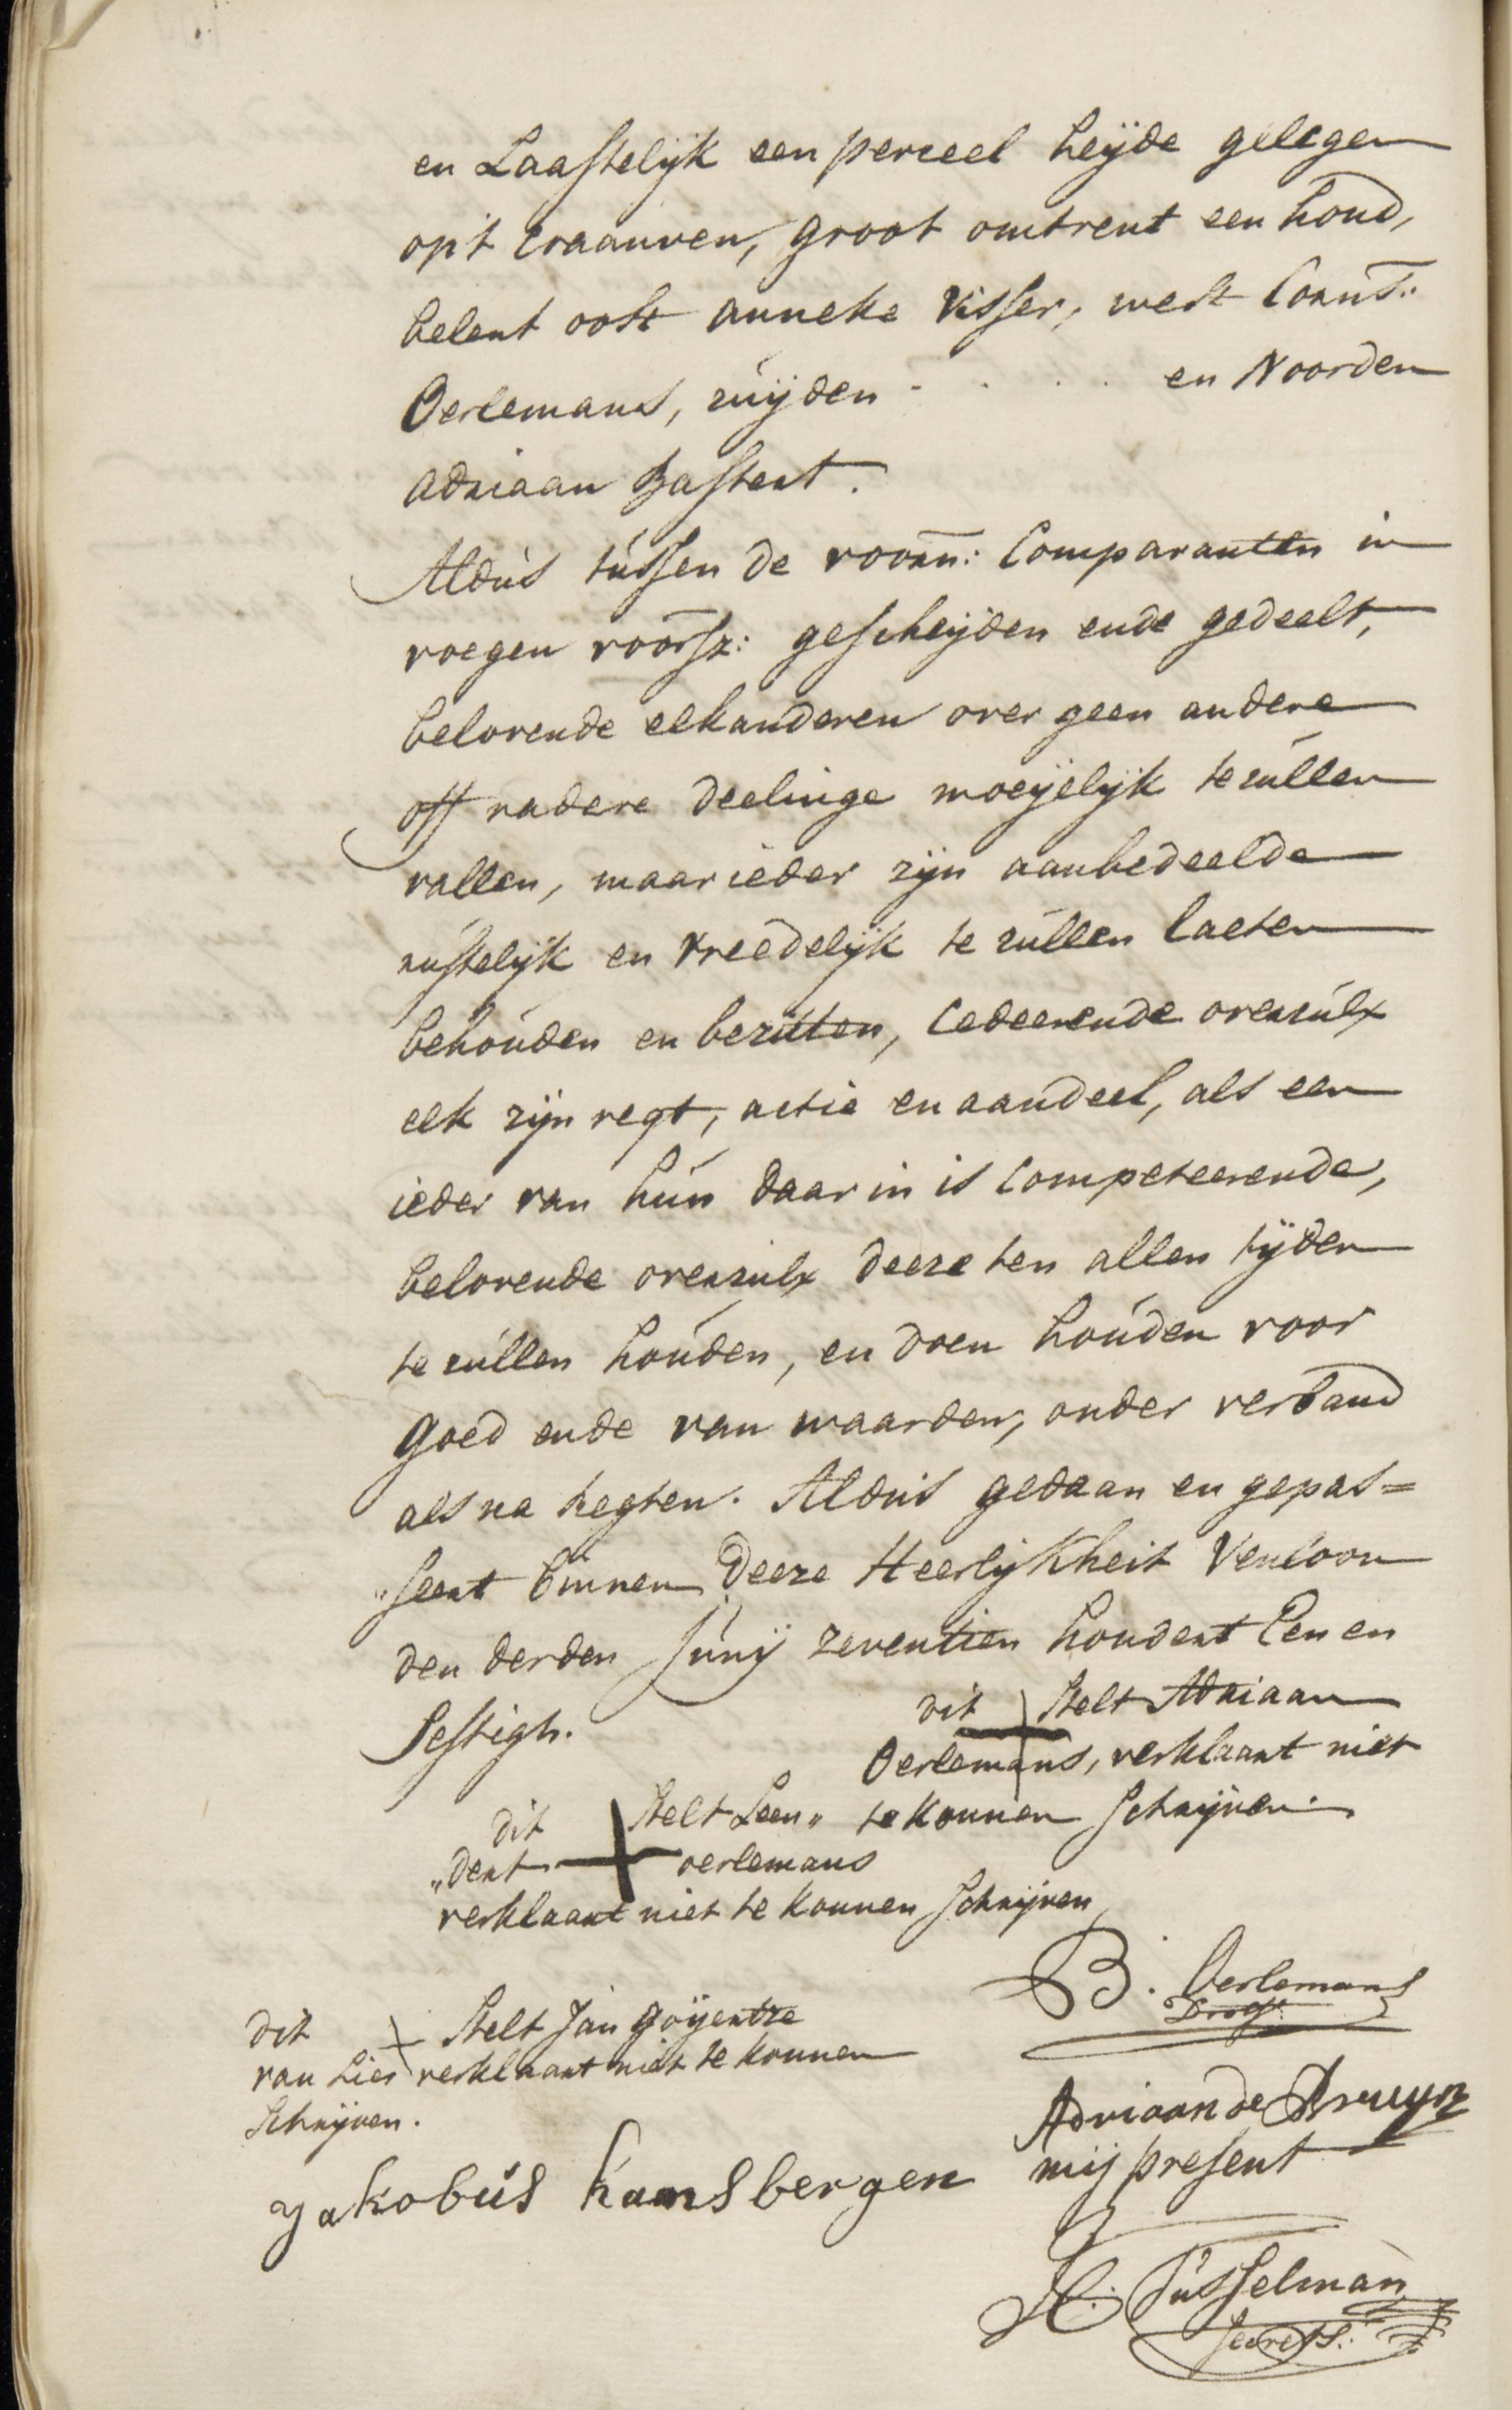 en Laastelijk een perceel heijde gelegen
op't Craanven, groot omtrent een hond,
belent oost anneke Visser, west Corns:
Oerlemans, zuijden . . . . en Noorden
adriaan Bastert.
Aldus tussen de voorn: Comparanten in
voegen voorsz: gescheijden ende gedeelt,
belovende elkanderen over geen andere
off nadere deelinge moeijelijk te zullen
vallen, maar ieder zijn aanbedeelde
rustelijk en vreedelijk te zullen laeten
behouden en bezitten, Cedeerende overzulx
elk zijn regt, actie en aandeel, als een
ieder van hun daar in is Competeerende,
belovende overzulx deeze ten allen tijden
te zullen houden, en doen houden voor
goed ende van waarden, onder verband
als na regten. Aldus gedaan en gepas=
"seert binnen deeze Heerlijkheit Venloon
den derden Junij zeventien hondert Een en
Sestigh.
dit + stelt Adriaan
Oerlemans, verklaart niet
te konnen schrijven.
dit + stelt Leen"
"dert oerlemans
verklaart niet te konnen schrijven,
B. Oerlemans
Dross:
dit + stelt Jan goijertze
van Lier verklaart niet te konnen
schrijven.
Adriaan de Bruyn
Jakobus kamsbergen
mij present
H: Susselman
Secrets: